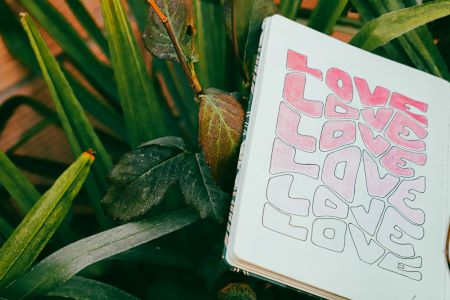 LOVE
LOVE
LOVE
LOVE
LOVE
LOVE